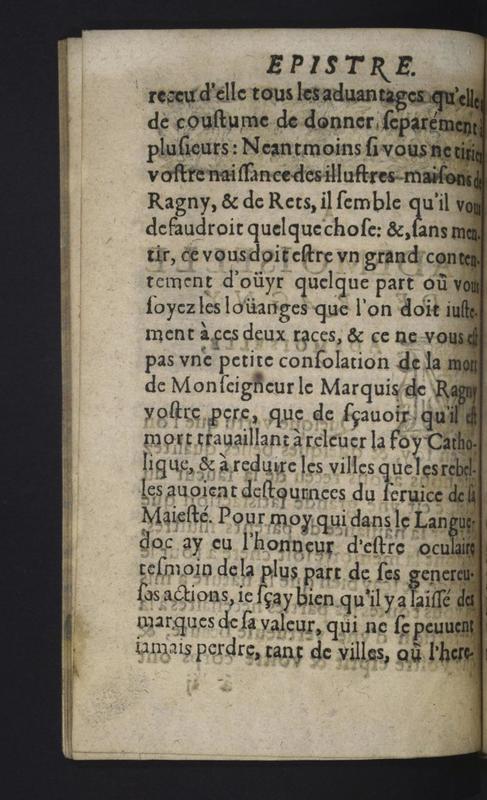 EPISTRE.
receu d'elle tous les aduantages qu'elle
de coustume de donner separément
plusieurs : Neantmoins si vous ne tiriez
vostre naissance des illustres maisons de
Ragny, & de Rets, il semble qu'il vous
defaudroit quelque chose: &, sans men-
tir, ce vous doit estre vn grand conten-
tement d'oüyr quelque part où vous
soyez les loüanges que l'on doit iuste-
ment à ces deux races, & ce ne vous est
pas vne petite consolation de la mort
de Monseigneur le Marquis de Ragny
vostre pere, que de sçauoir qu'il est
mort trauaillant à releuer la foy Catho-
lique, & à reduire les villes que les rebel-
les auoient destournees du seruice de sa
Maiesté. Pour moy qui dans le Langue-
doc ay eu l'honneur d'estre oculaire
tesmoin de la plus part de ses genereu-
ses actions, ie sçay bien qu'il y a laissé des
marques de sa valeur, qui ne se peuuent
iamais perdre, tant de villes, où l'here-